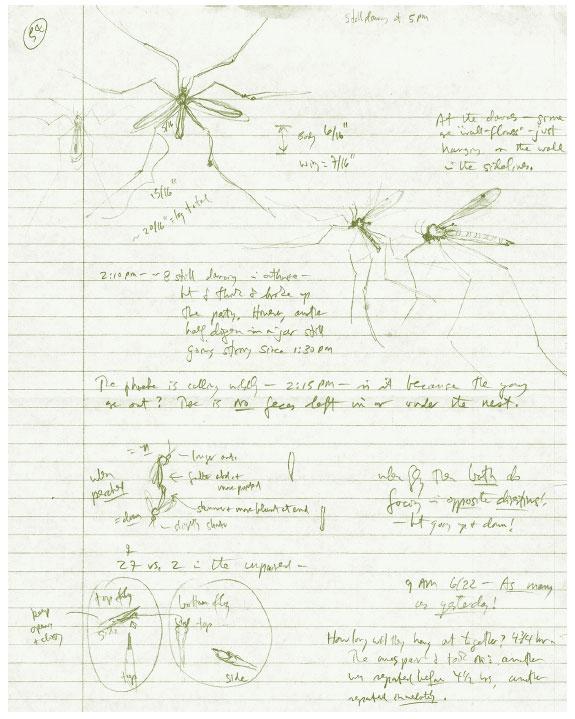 Still dancing at 5 pm
At the dances - some
are "wall-flowers" - just
hanging on the wall
in the sidelines.
5/16"
Body 6/16"
Wing = 7/16"
13/16"
~ 20/16" = leg total
2:10 pm - ~ 8 still dancing in outhouse -
but I think I broke up
the party. However, another
half dozen in a jar still
going strong since 1:30 pm
The phoebe is calling wildly - 2:15 pm - is it because the young
are out? There is no feces left in or under the nest.
longer ant.
when
perched
more pointed
slimmer + more blunt at end
slightly shorter
when fly then both do
facing in opposite directions!
- but going up + down!
27 vs. 2 in the unpaired -
9 AM 6/22 - As many
as yesterday!
top fly
side
top
bottom fly
top
side
keep
opening
+ closing
How long will they hang at together? 4 3/4 hrs -
The one pair I took in; another
was separated before 4 1/2 hrs, another
separated immediately.